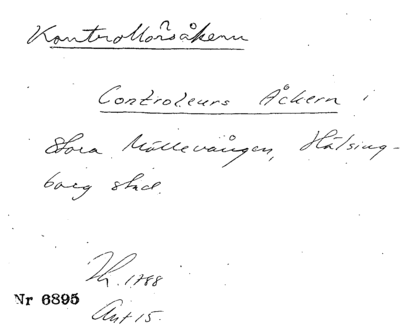 Kontrollörsåkern
Controleurs Åckern i
Stora Möllevången, Hälsing-
borg stad.
Lh. 1788
Nr 6895
Akt 15.